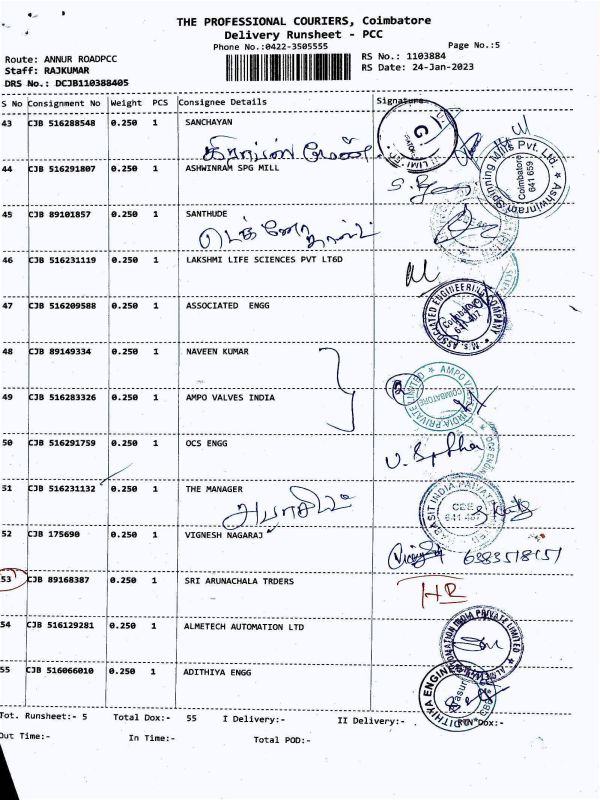 THE PROFESSIONAL COURIERS, Coimbatore
Delivery Runsheet - PCC
Phone No.:0422-3505555
Page No.:5
Route: ANNUR ROADPCC
RS No.: 1103884
Staff: RAJKUMAR
RS Date: 24-Jan-2023
DRS No.: DCJB110388405
S No Consignment No Weight PCS Consignee Details Signature
43 CJB 516288548 0.250 1 SANCHAYAN
44 CJB 516291807 0.250 1 ASHWINRAM SPG MILL
Ashwinram Spinning Mills Pvt. Ltd.
Coimbatore
641 659
45 CJB 89101857 0.250 1 SANTHUDE
46 CJB 516231119 0.250 1 LAKSHMI LIFE SCIENCES PVT LT6D
47 CJB 516209588 0.250 1 ASSOCIATED ENGG
M/s. ASSOCIATED ENGINEERING COMPANY
Coimbatore
641 407
48 CJB 89149334 0.250 1 NAVEEN KUMAR
2
49 CJB 516283326 0.250 1 AMPO VALVES INDIA
AMPO VALVES INDIA PRIVATE LIMITED
COIMBATORE
50 CJB 516291759 0.250 1 OCS ENGG
OCS ENGINE
51 CJB 516231132 0.250 1 THE MANAGER
INDIA PRIVATE
CBE
641 407
52 CJB 175690 0.250 1 VIGNESH NAGARAJ
53 CJB 89168387 0.250 1 SRI ARUNACHALA TRDERS
HR
54 CJB 516129281 0.250 1 ALMETECH AUTOMATION LTD
INDIA PRIVATE LIMITED
55 CJB 516066010 0.250 1 ADITHIYA ENGG
Tot. Runsheet:- 5 Total Dox:- 55 I Delivery:- II Delivery:- Dox:-
Out Time:- In Time:- Total POD:-